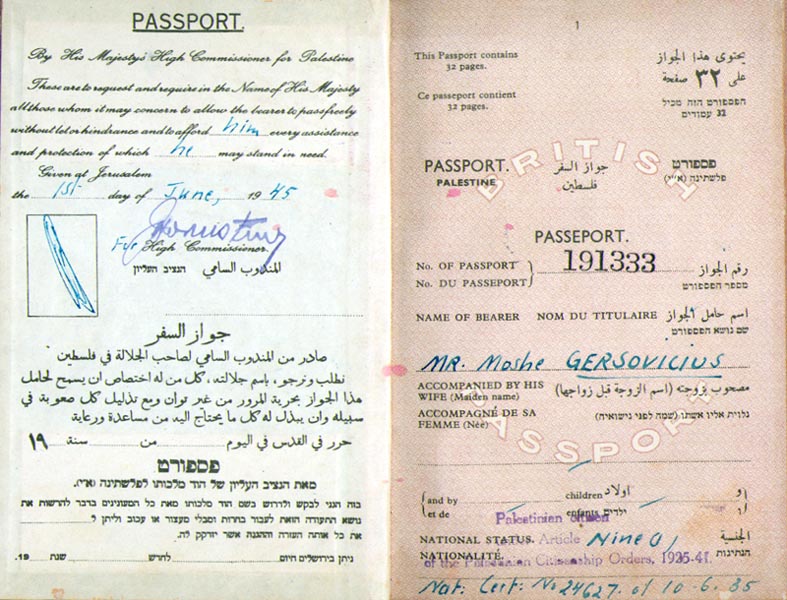 PASSPORT.
By His Majesty's High Commissioner for Palestine
These are to request and require in the Name of His Majesty
all those whom it may concern to allow the bearer to pass freely
without let or hindrance and to afford him every assistance
and protection of which he may stand in need.
Given at Jerusalem
the 1st day of June, 1945
For High Commissioner.
المندوب السامي הנציב העליון
جواز السفر
صادر من المندوب السامي لصاحب الجلالة في فلسطين
نطلب ونرجو، باسم جلالته، كل من له اختصاص ان يسمح لحامل
هذا الجواز بحرية المرور من غير توان ومع تذليل كل صعوبة في
سبيله وان يبذل له كل ما يحتاج اليه من مساعدة ورعاية
حرر في القدس في اليوم من سنة ١٩
פספורט
מאת הנציב העליון של הוד מלכותו לפלשתינה (א״י).
בזה הנני לבקש ולדרוש בשם הוד מלכותו מאת כל המעונינים בדבר להרשות את
נושא התעודה הזאת לעבור בחרות ומבלי מעצור או עכוב וליתן ל
את כל אותה העזרה וההגנה אשר יזדקק לה.
ניתן בירושלים היום לחדש שנת 19
1
This Passport contains
32 pages.
يحتوى هذا الجواز
على ٣٢ صفحة
Ce passeport contient
32 pages.
הפספורט הזה מכיל
32 עמודים
BRITISH
PASSPORT. جواز السفر פספורט
PALESTINE فلسطين פלשתינה (א״י)
PASSEPORT.
No. OF PASSPORT 191333 رقم الجواز
No. DU PASSEPORT מספר הפספורט
NAME OF BEARER NOM DU TITULAIRE اسم حامل الجواز
שם נושא הפספורט
MR. Moshe GERSOVICIUS
ACCOMPANIED BY HIS
WIFE (Maiden name)
مصحوب بزوجته (اسم الزوجة قبل زواجها)
ACCOMPAGNÉ DE SA
FEMME (Née)
נלוית אליו אשתו (שמה לפני נישואיה)
PASSPORT
and by children اولاد و
et de enfants ילדים ו
Palestinian citizen
NATIONAL STATUS. Article Nine (1) الجنسية
NATIONALITÉ. הנתינות
of the Palestinian Citizenship Orders, 1925-41.
Nat. Cert. No 24627 of 10-6-35